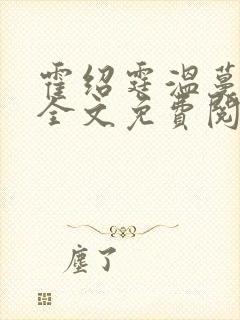 霍绍霆温蔓
全文免费阅
尘了